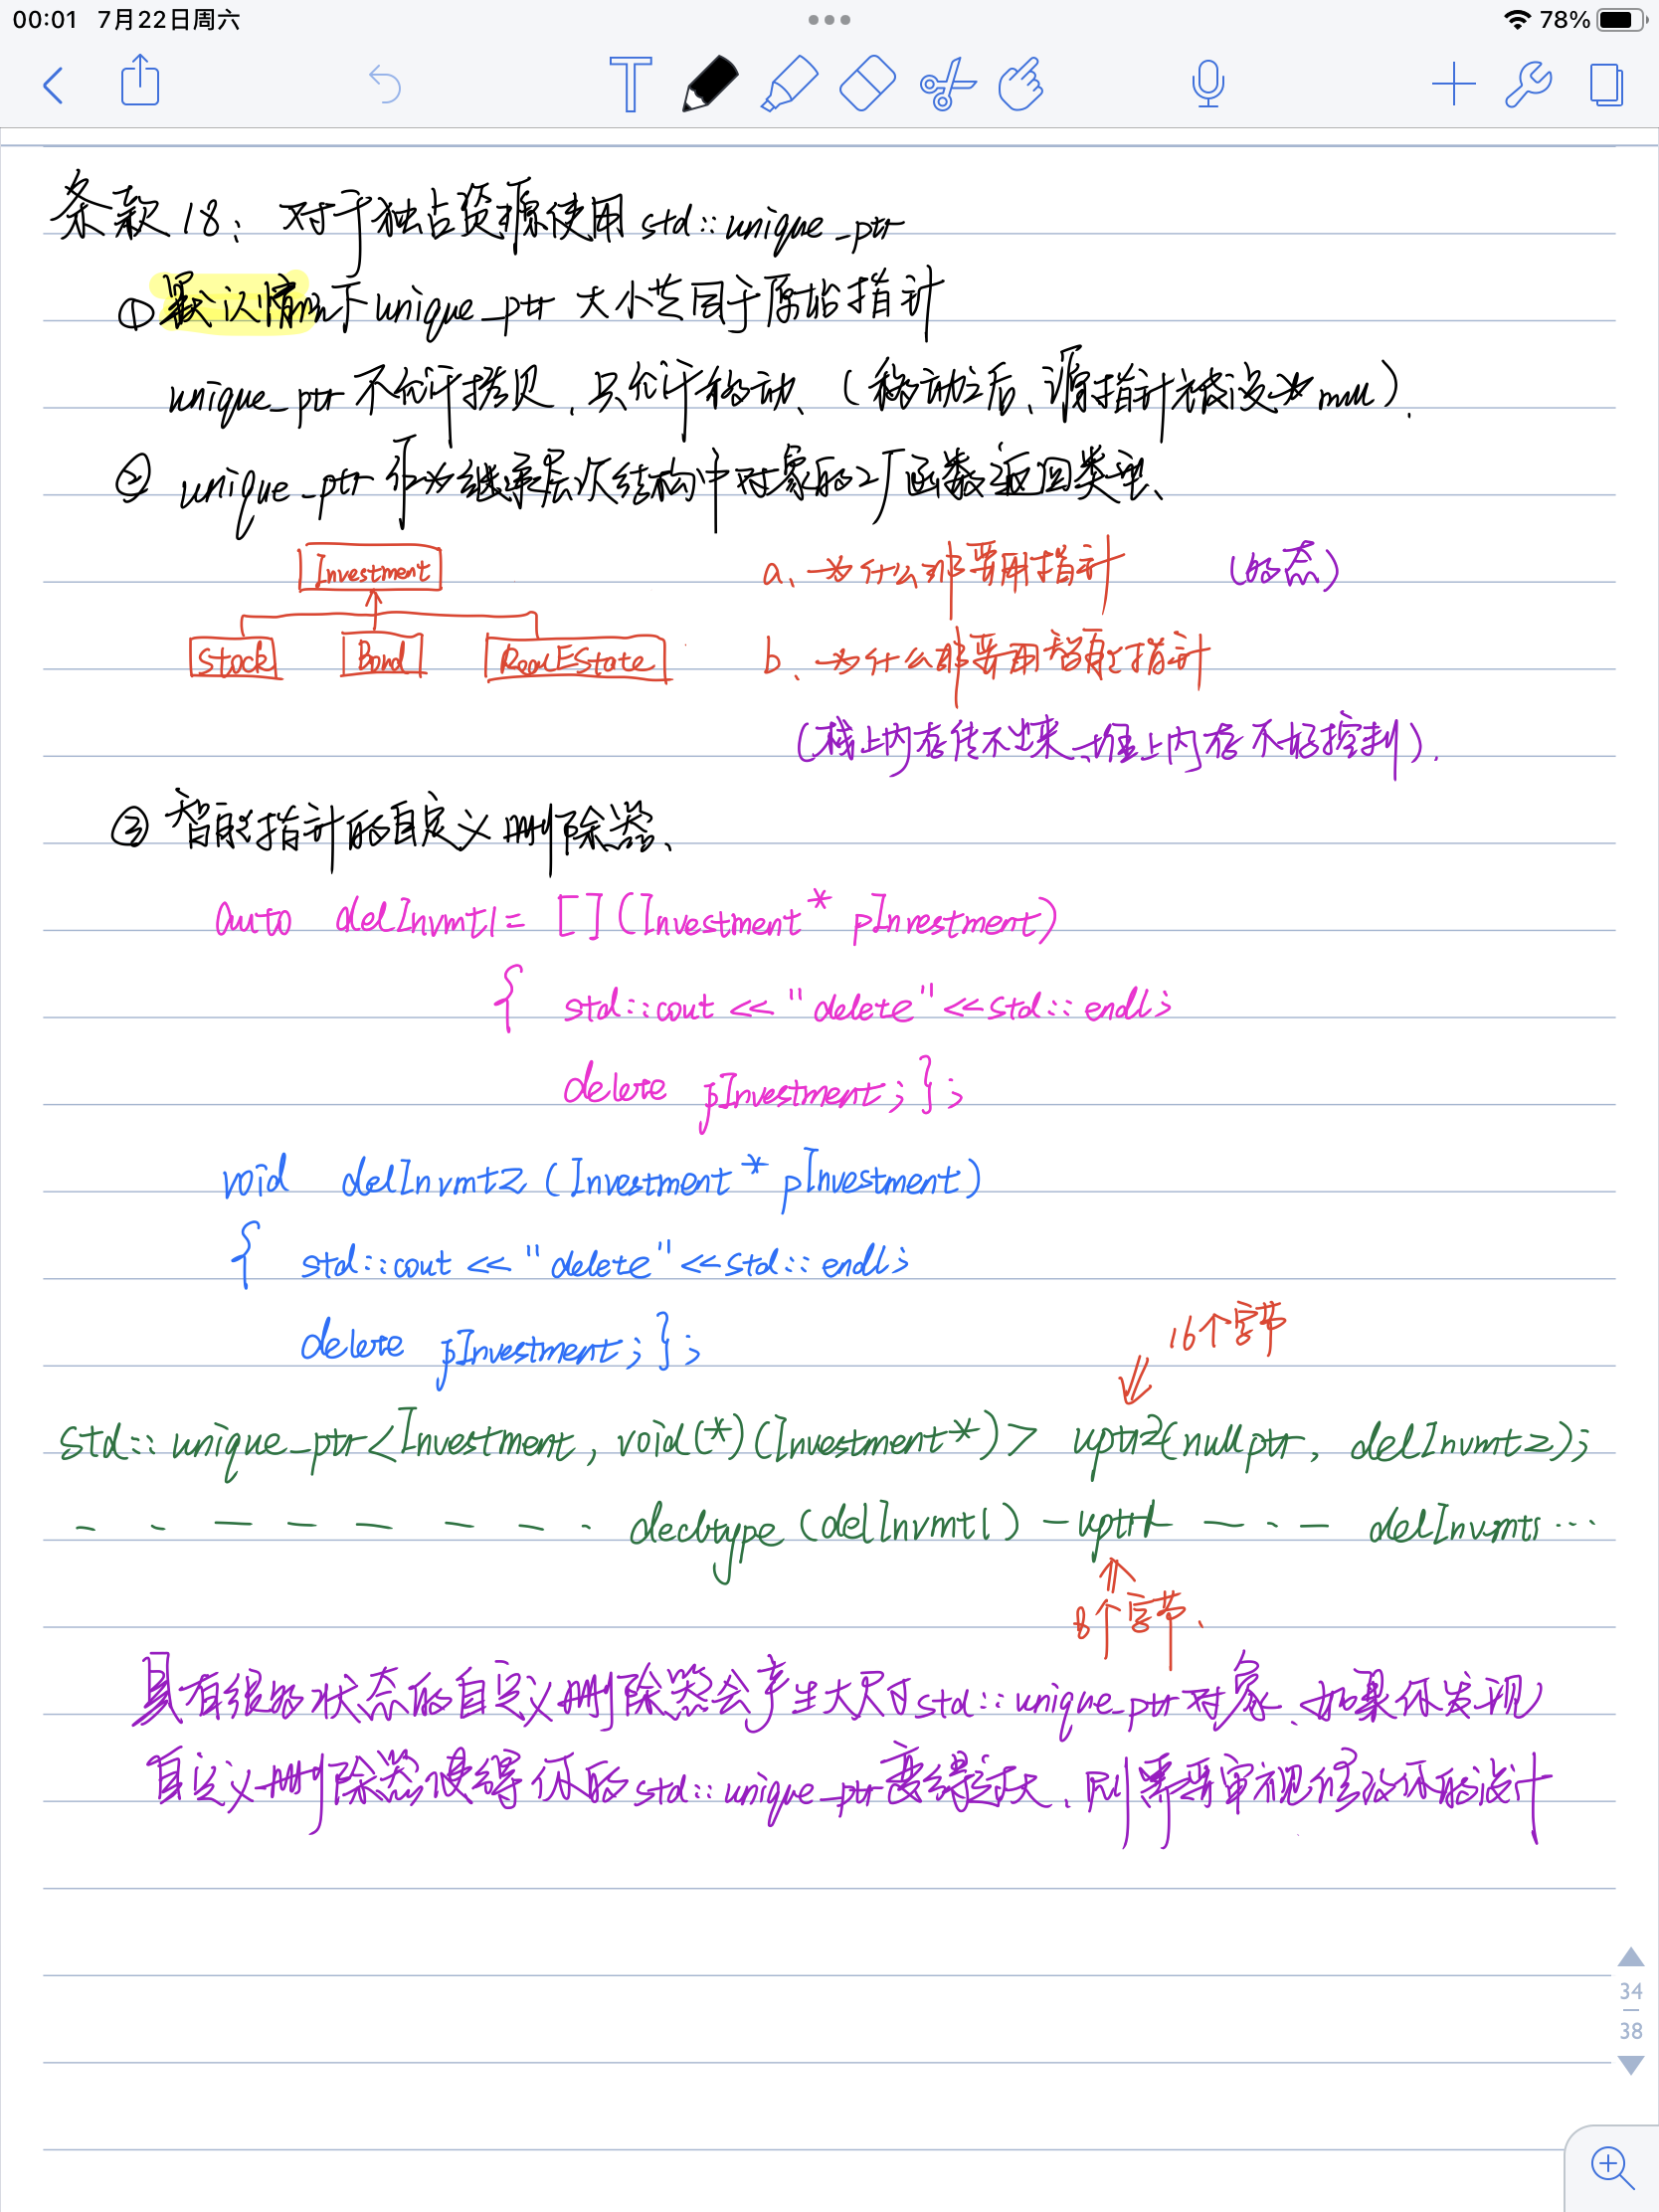 00:01 7月22日周六 78%
条款18: 对于独占资源使用 std::unique_ptr
① 默认情况下unique_ptr 大小等同于原始指针
unique_ptr 不允许拷贝、只允许移动、(移动之后、源指针被设为null).
② unique_ptr 作为继承层次结构中对象的工厂函数返回类型、
Investment
a、为什么要用指针 (多态)
Stock Bond RealEState
b、为什么要用智能指针
(栈上内存传不出来、堆上内存不好控制).
③ 智能指针的自定义删除器、
auto delInvmt1= [](Investment* pInvestment)
{ std::cout << "delete"<<std::endl;
delete pInvestment; };
void delInvmt2 (Investment* pInvestment)
{ std::cout << "delete"<<std::endl;
delete pInvestment; };
16个字节
std::unique_ptr<Investment, void(*)(Investment*)> uptr2(nullptr, delInvmt2);
decltype (delInvmt1) - uptr1 - - - - delInvmt1 ...
8个字节.
具有很多状态的自定义删除器会产生大尺寸std::unique_ptr对象、如果你发现
自定义删除器使得你的std::unique_ptr变得过大、则需要审视修改你的设计
34
38